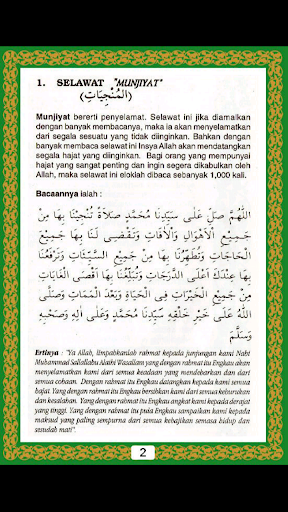 1. SELAWAT "MUNJIYAT"
(المُنْجِيَاتِ)
Munjiyat bererti penyelamat. Selawat ini jika diamalkan
dengan banyak membacanya, maka ia akan menyelamatkan
dari segala sesuatu yang tidak diinginkan. Bahkan dengan
banyak membaca selawat ini Insya Allah akan mendatangkan
segala hajat yang diinginkan. Bagi orang yang mempunyai
hajat yang sangat penting dan ingin segera dikabulkan oleh
Allah, maka selawat ini eloklah dibaca sebanyak 1,000 kali.
Bacaannya ialah :
اَللّٰهُمَّ صَلِّ عَلَى سَيِّدِنَا مُحَمَّدٍ صَلاَةً تُنْجِيْنَا بِهَا مِنْ
جَمِيْعِ الْاَهْوَالِ وَالْاٰفَاتِ وَتَقْضِى لَنَا بِهَا جَمِيْعَ
الْحَاجَاتِ وَتُطَهِّرُنَا بِهَا مِنْ جَمِيْعِ السَّيِّئَاتِ وَتَرْفَعُنَا
بِهَا عِنْدَكَ اَعْلَى الدَّرَجَاتِ وَتُبَلِّغُنَا بِهَا اَقْصَى الْغَايَاتِ
مِنْ جَمِيْعِ الْخَيْرَاتِ فِى الْحَيَاةِ وَبَعْدَ الْمَمَاتِ وَصَلَّى
اللهُ عَلَى خَيْرِ خَلْقِهِ سَيِّدِنَا مُحَمَّدٍ وَعَلَى اٰلِهِ وَصَحْبِهِ
وَسَلَّمَ
Ertinya : "Ya Allah, limpahkanlah rahmat kepada junjungan kami Nabi
Muhammad Sallallahu Alaihi Wasallam yang dengan rahmat itu Engkau akan
menyelamatkan kami dari semua keadaan yang mendebarkan dan dari
semua cobaan. Dengan rahmat itu Engkau datangkan kepada kami semua
hajat. Yang dengan rahmat itu Engkau bersihkan kami dari semua keburukan
dan kesalahan. Yang dengan rahmat itu Engkau angkat kami kepada derajat
yang tinggi. Yang dengan rahmat itu pula Engkau sampaikan kami kepada
maksud yang paling sempurna dari semua kebajikan semasa hidup dan
sesudah mati".
2